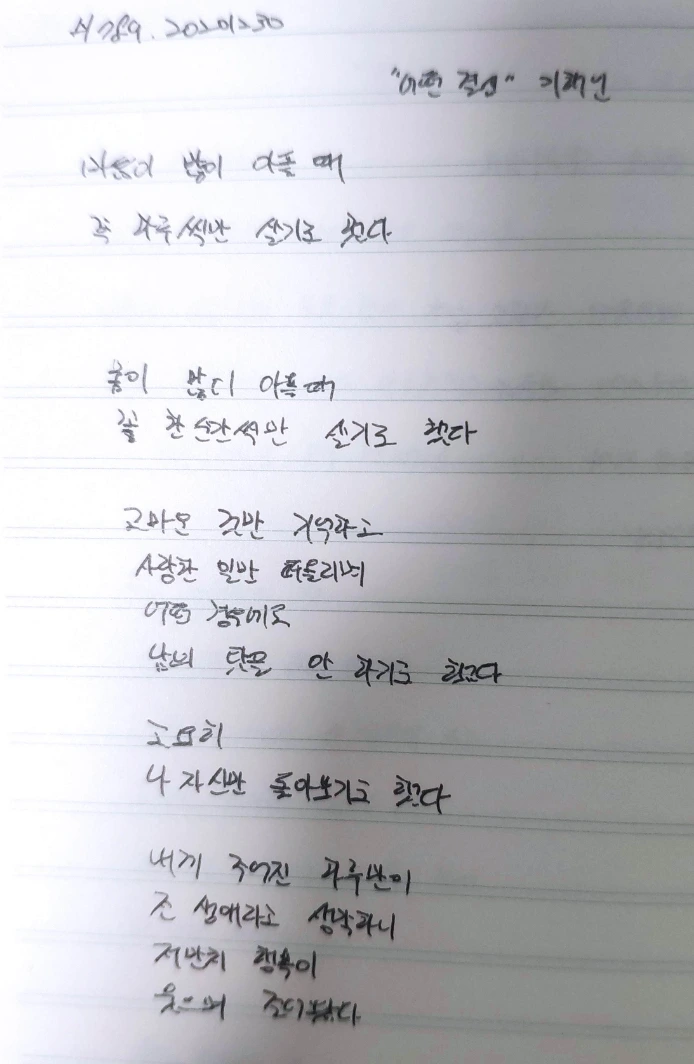 시필9. 20201230
"어떤 결심" 이해인
마음이 많이 아플 때
꼭 하루씩만 살기로 했다
몸이 많이 아플때
꼭 한순간씩만 살기로 했다
고마운 것만 기억하고
사랑한 일만 떠올리며
어떤 경우에도
남의 탓을 안 하기로 했다
고요히
나 자신만 돌아보기로 했다
내게 주어진 하루만이
전 생애라고 생각하니
저만치 행복이
웃으며 걸어왔다